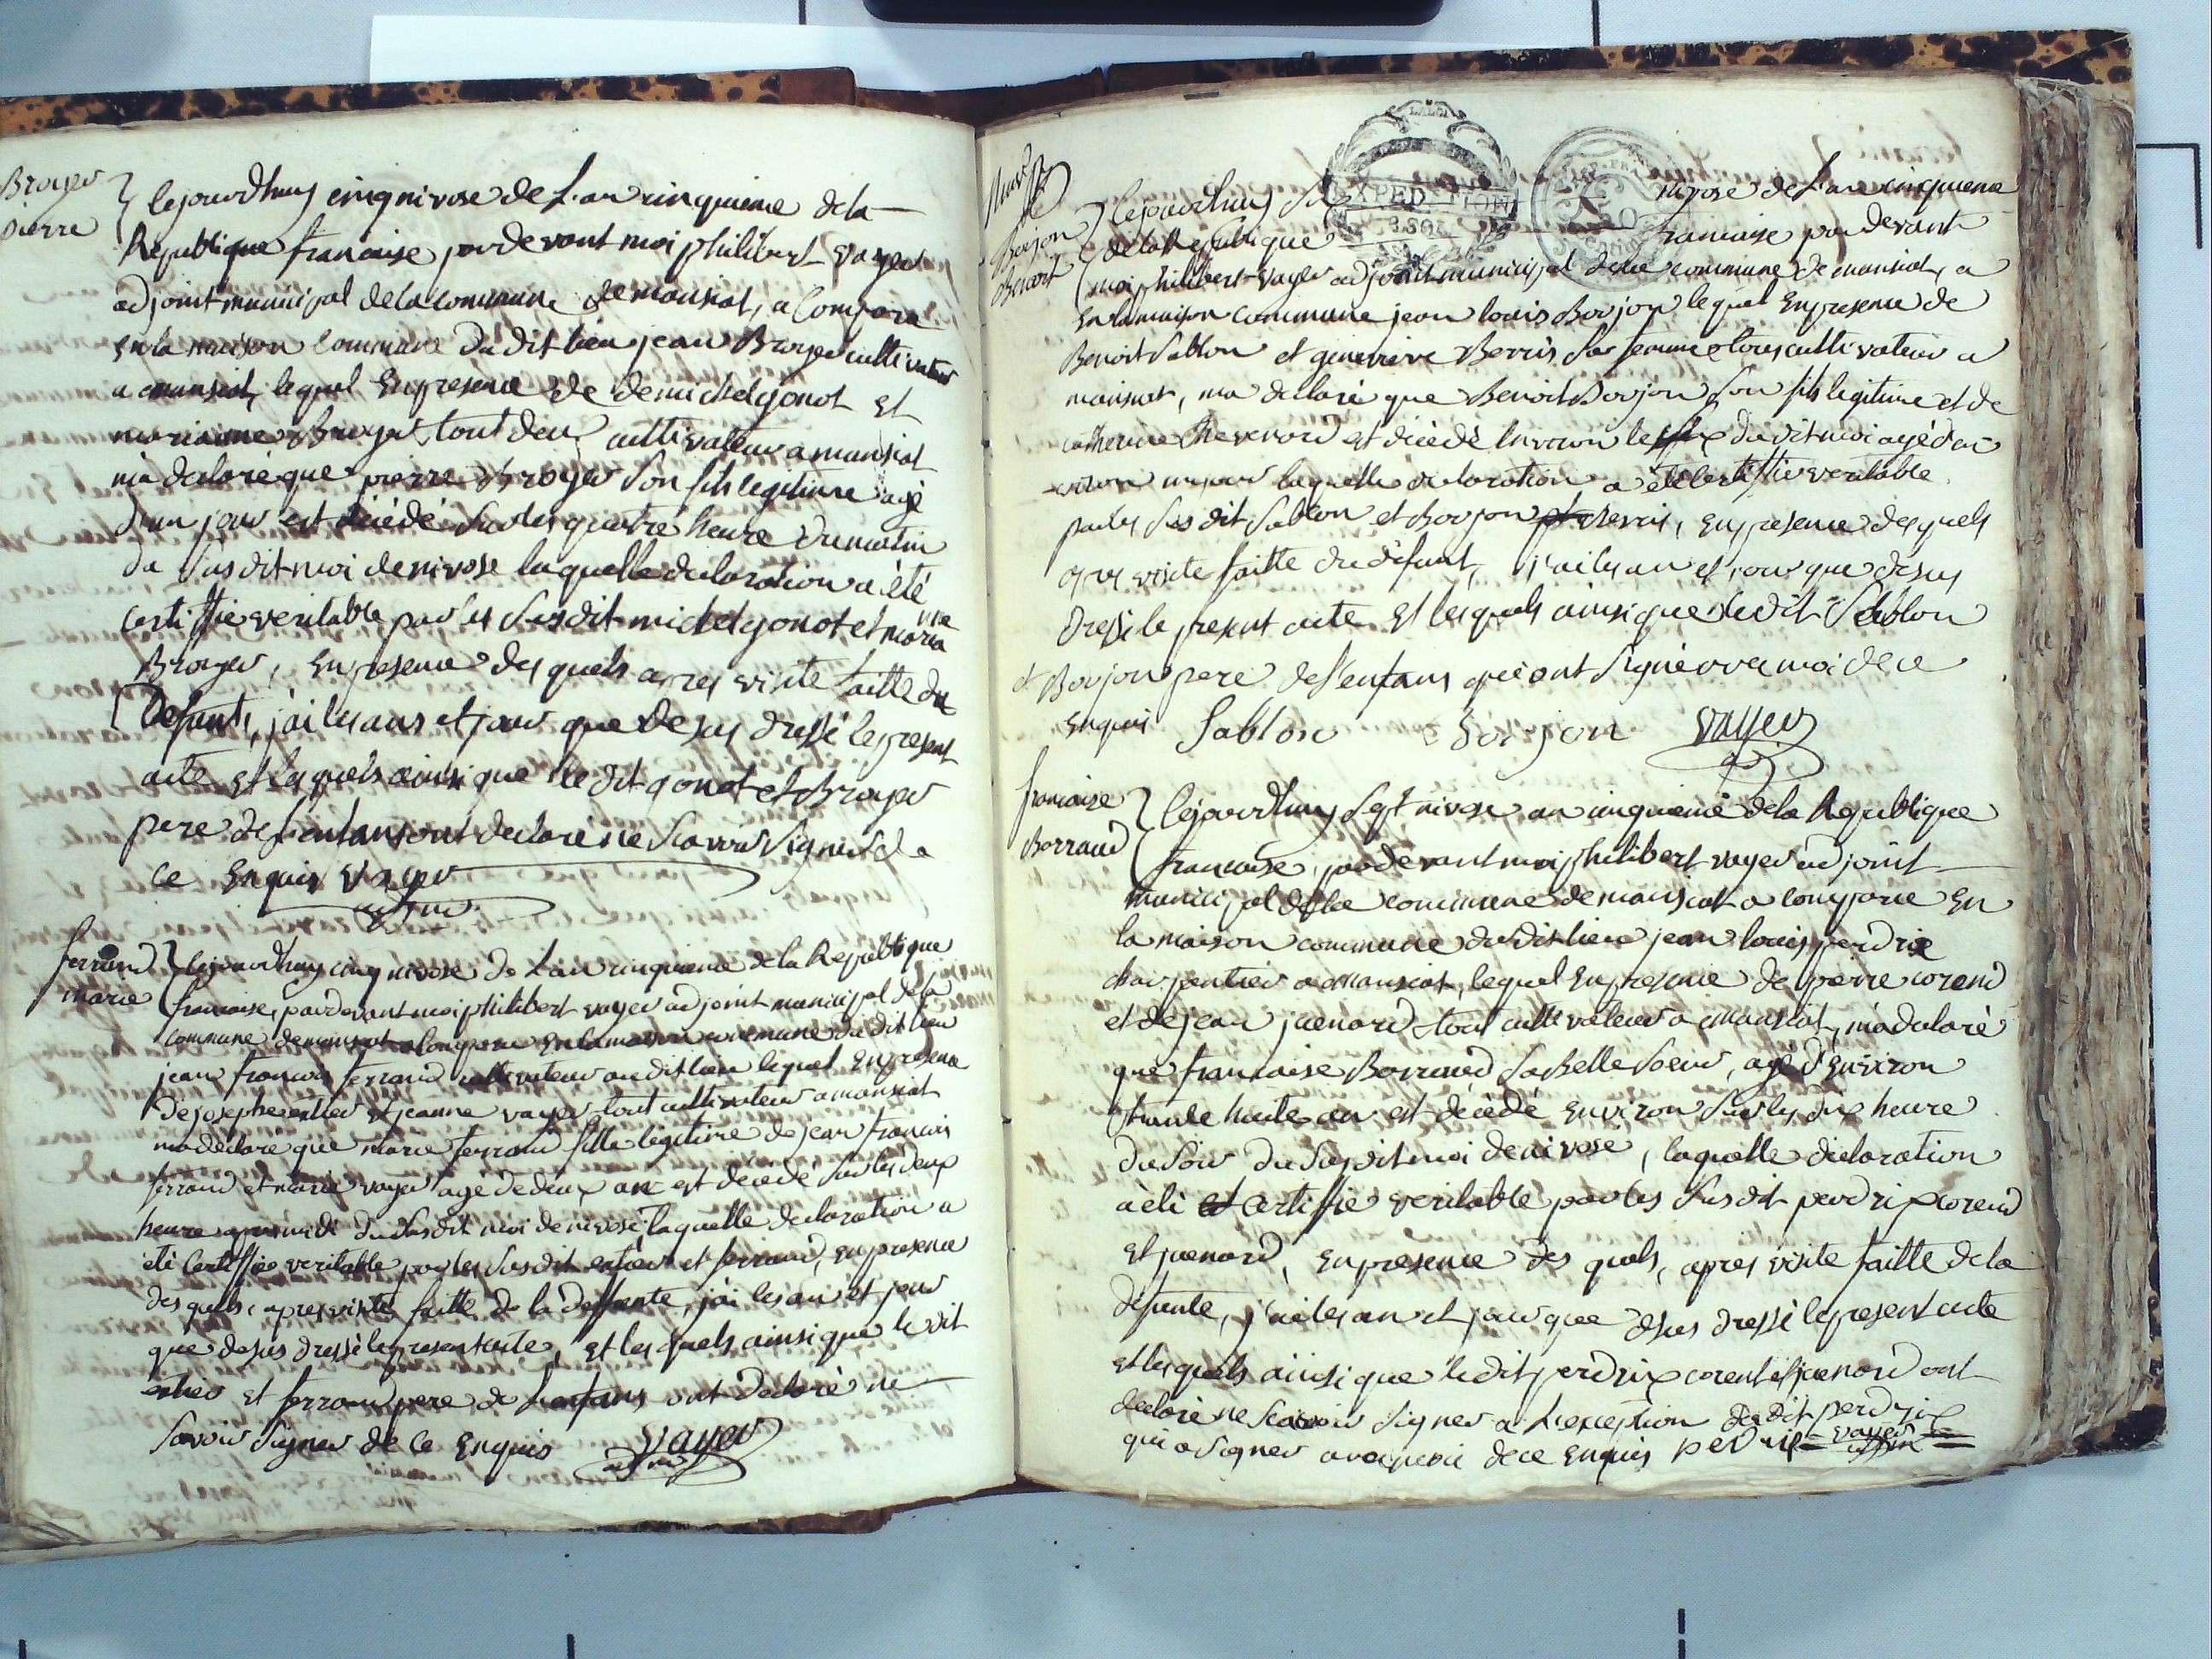 Broyer
pierre
Cejourdhuy cinq nivose de L'an cinquieme dela
Republique francaise pardevant moi philibert vayer
adjoint municipal dela commune de mansiat, a Comparu
En la maison Commune du dit lieu jean Broyer cultivateur
a mansiat, lequel En presence de de michel gonot Et
marianne Broyer tout deux cultivateur a mansiat
m'a declaré que pierre Broyer Son fils legitime agé
d'un jour est décédé Sur les quatre heure du matin
du Sus dit moi de nivose laquelle declaration a été
Certiffie veritable par les Susdit michel gonot et maria nne
Broyer, En presence des quels apres visite faitte du
Defunt, j'ai les ans et jour que desus dressé le present
acte Et lesquels ainsi que le dit gonot et Broyer
pere de l'enfans ont declaré ne Savoir Signer de
ce Enquis vayer
adjoint
ferrand
marie
Cejourdhuy cinq nivose de L'an cinquieme de la Republique
francaise, pardevant moi philibert vayer adjoint municipal dela
commune de mansiat a Comparu En la maison commune du dit lieu
jean francois ferrand cultivateur au dit lieu lequel En presence
de joseph et jeanne vayer tout cultivateur a mansiat
ma declaré que marie ferrand fille legitime de jean francois
ferrand et marie vayer agé de deux an est décédé Sur les deux
heure apres midi du Susdit moi de nivose, laquelle declaration a
été Certiffie veritable par les Susdit et ferrand, En presence
des quels, apres visite faitte de la deffunte, j'ai les an et jour
que desus dressé le present acte, Et les quels ainsi que le dit
et ferrand pere de L'enfans ont declaré ne
Savoir Signer de Ce Enquis vayer
adjoint
LA LOI
EXPEDITION
Boujon
Benoit
Cejourdhuy nivose de L'an cinquieme
de la Republique francaise pardevant
moi philibert vayer adjoint municipal de la commune de mansiat, a
En la maison commune jean louis Boujon lequel En presence de
Benoit Sablon et genevieve Berris Sa femme tous cultivateur a
mansiat, ma declaré que Benoit Boujon Son fils legitime et de
catherine Chevenard est décédé Environ le du dit moi agé d'en
viron un jour laquelle declaration a été Certiffie veritable
par les Sus dit Sablon et Boujon, En presence des quels
apres visite faitte du defunt, j'ai les an et jour que desus
dressé le present acte Et lesquels ainsi que le dit Sablon
et Boujon pere de l'enfans qui ont Signé avec moi de ce
Enquis Sablon Boujon vayer
francaise
Borraud
Cejourdhuy Sept nivose an cinquieme dela Republique
francaise, pardevant moi philibert vayer adjoint
municipal de la commune de mansiat a comparu En
la maison commune du dit lieu jean louis perdrix
charpentier a mansiat, lequel En presence de pierre corend
et de jean juenard tout cultivateur a mansiat, m'a declaré
que francaise Borraud Sa Belle Soeur, agé d'Environ
trante huite an est décédé Environ Sur les dix heure
du Soir du Susdit moi de nivose, laquelle declaration
a été Certiffie veritable par les Susdit perdrix corend
Et juenard, En presence des quels, apres visite faitte de la
defunte, j'ai les an et jour que desus dressé le present acte
Et lesquels ainsi que le dit perdrix corent et juenard ont
declaré ne Scavoir Signer a L'exception du dit perdrix
qui a Signer avec moi de ce Enquis perdrix vayer
adjoint